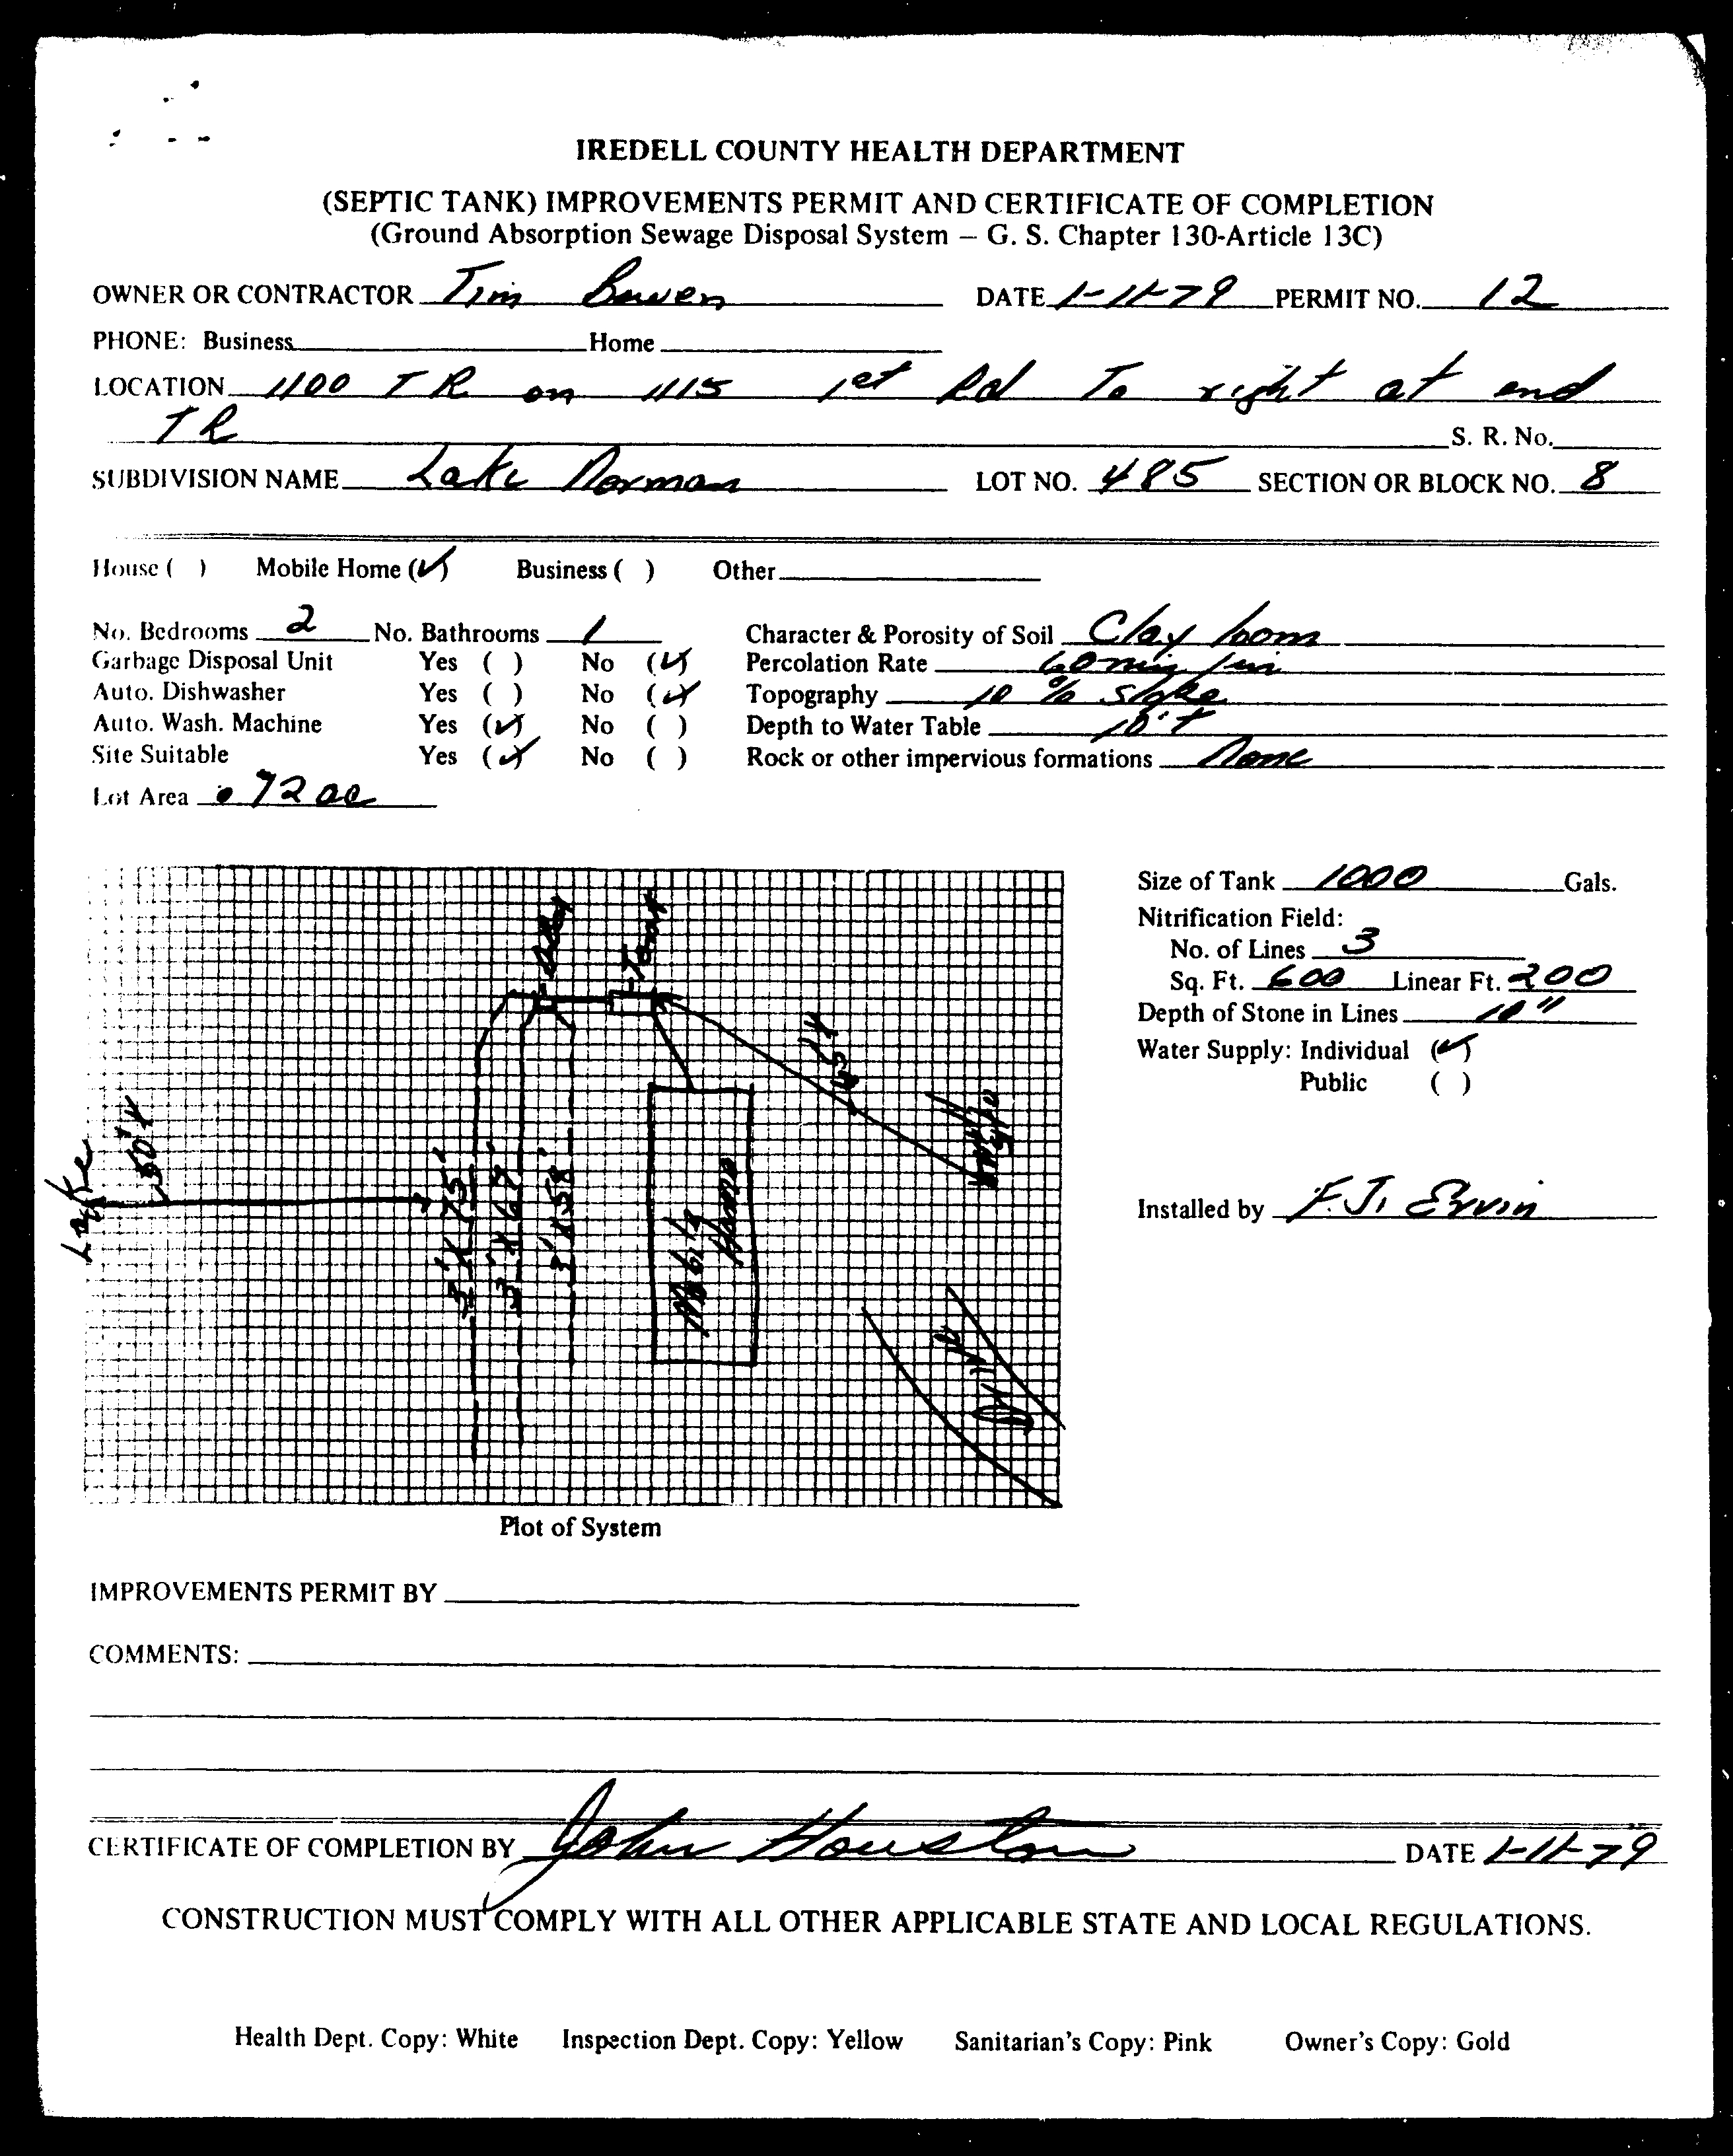 IREDELL COUNTY HEALTH DEPARTMENT
(SEPTIC TANK) IMPROVEMENTS PERMIT AND CERTIFICATE OF COMPLETION
(Ground Absorption Sewage Disposal System – G. S. Chapter 130-Article 13C)
OWNER OR CONTRACTOR Tim Bowen DATE 1-11-79 PERMIT NO. 12
PHONE: Business Home
LOCATION 1100 TR on 1115 1st Rd To right at end
TR S. R. No.
SUBDIVISION NAME Lake Norman LOT NO. 485 SECTION OR BLOCK NO. 8
House ( ) Mobile Home (✓) Business ( ) Other
No. Bedrooms 2 No. Bathrooms 1 Character & Porosity of Soil Clay loom
Garbage Disposal Unit Yes ( ) No (✓) Percolation Rate 60 min/in
Auto. Dishwasher Yes ( ) No (✓) Topography 10 % slope
Auto. Wash. Machine Yes (✓) No ( ) Depth to Water Table 10'+
Site Suitable Yes (✓) No ( ) Rock or other impervious formations None
Lot Area .72 ac
Size of Tank 1000 Gals.
Nitrification Field:
No. of Lines 3
Sq. Ft. 600 Linear Ft. 200
Depth of Stone in Lines 10"
Water Supply: Individual (✓)
Public ( )
Installed by F.J. Ervin
Tank
Lake
50'+
3' X 75'
3' X 67'
3' X 58'
Mobile
Home
Plot of System
IMPROVEMENTS PERMIT BY
COMMENTS:
CERTIFICATE OF COMPLETION BY John Houston DATE 1-11-79
CONSTRUCTION MUST COMPLY WITH ALL OTHER APPLICABLE STATE AND LOCAL REGULATIONS.
Health Dept. Copy: White Inspection Dept. Copy: Yellow Sanitarian's Copy: Pink Owner's Copy: Gold